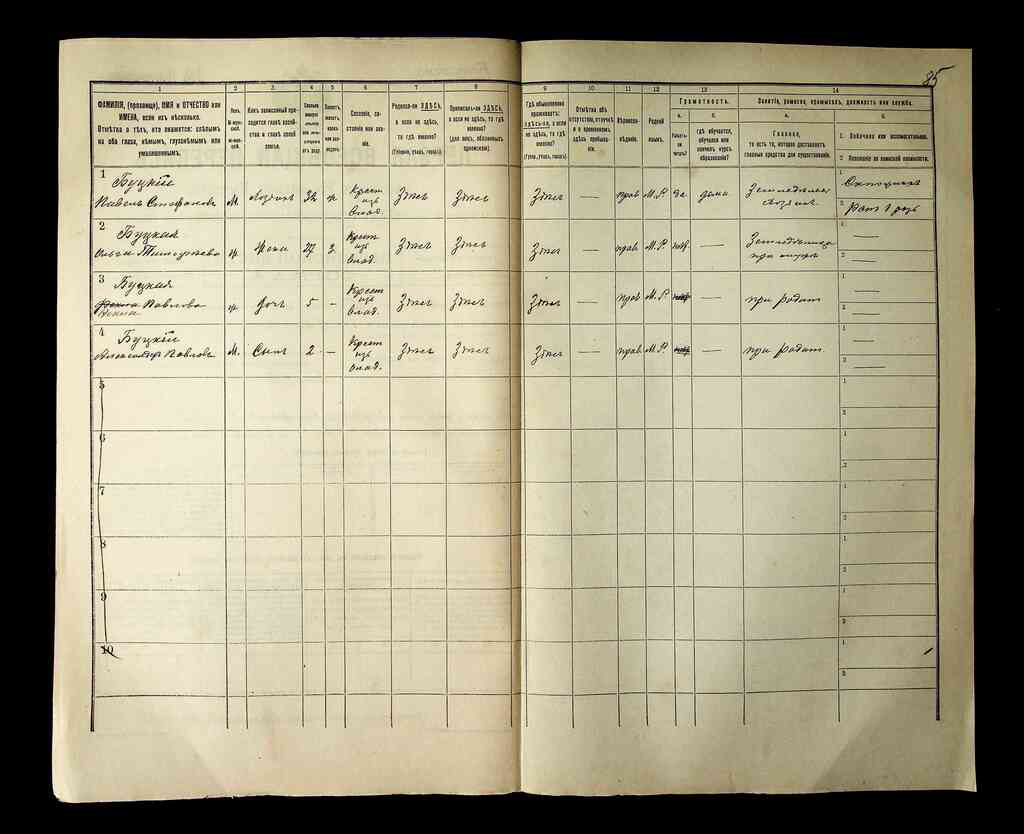 85
1 2 3 4 5 6 7 8 9 10 11 12 13 14
ФАМИЛІЯ, (прозвище), ИМЯ и ОТЧЕСТВО или
ИМЕНА, если ихъ нѣсколько.
Отмѣтка о тѣхъ, кто окажется: слѣпымъ
на оба глаза, нѣмымъ, глухонѣмымъ или
умалишеннымъ.
Полъ.
М-муж-
ской.
Ж-жен-
ской.
Какъ записанный при-
ходится главѣ хозяй-
ства и главѣ своей
семьи.
Сколько
минуло
лѣтъ
Холостъ,
женатъ,
вдовъ
или раз-
веденъ.
Сословіе, со-
стояніе или зва-
ніе.
Родился-ли ЗДѢСЬ,
а если не здѣсь,
то гдѣ именно?
(Губернія, уѣздъ, городъ).
Приписанъ-ли ЗДѢСЬ,
а если не здѣсь, то гдѣ
именно?
(для лицъ, обязанныхъ
припискою).
Гдѣ обыкновенно
проживаетъ:
здѣсь-ли, а если
не здѣсь, то гдѣ
именно?
(Губер., уѣздъ, городъ).
Отмѣтка объ
отсутствіи, отлучкѣ
и о временномъ
здѣсь пребыва-
ніи.
Вѣроиспо-
вѣданіе.
Родной
языкъ.
Грамотность.
а. б.
Умѣетъ-
ли
читать?
гдѣ обучается,
обучался или
кончилъ курсъ
образованія?
Занятіе, ремесло, промыселъ, должность или служба.
а. б.
Главное,
то есть то, которое доставляетъ
главныя средства для существованія.
1. Побочное или вспомогательное.
2. Положеніе по воинской повинности.
1 Буцкій
Павелъ Стефановъ М Хозяинъ 32 ж Крест из влад. Здѣсь Здѣсь Здѣсь — прав М.Р. Да дома Земледѣлецъ хозяинъ 1
2 Рат 1 раз
2 Буцкая
Ольга Тимофеева ж. Жена 27 з. Крест из влад. Здѣсь Здѣсь Здѣсь — прав М.Р. нѣт — при мужѣ 1 —
2 —
3 Буцкая
Павлова ж. Дочь 5 — Крест из влад. Здѣсь Здѣсь Здѣсь — прав М.Р. — при родит 1 —
2 —
4 Буцкій
Александръ Павловъ М. Сынъ 2 — Крест из влад. Здѣсь Здѣсь Здѣсь — прав М.Р. — при родит 1 —
2 —
5 1
2
6 1
2
7 1
2
8 1
2
9 1
2
10 1
2